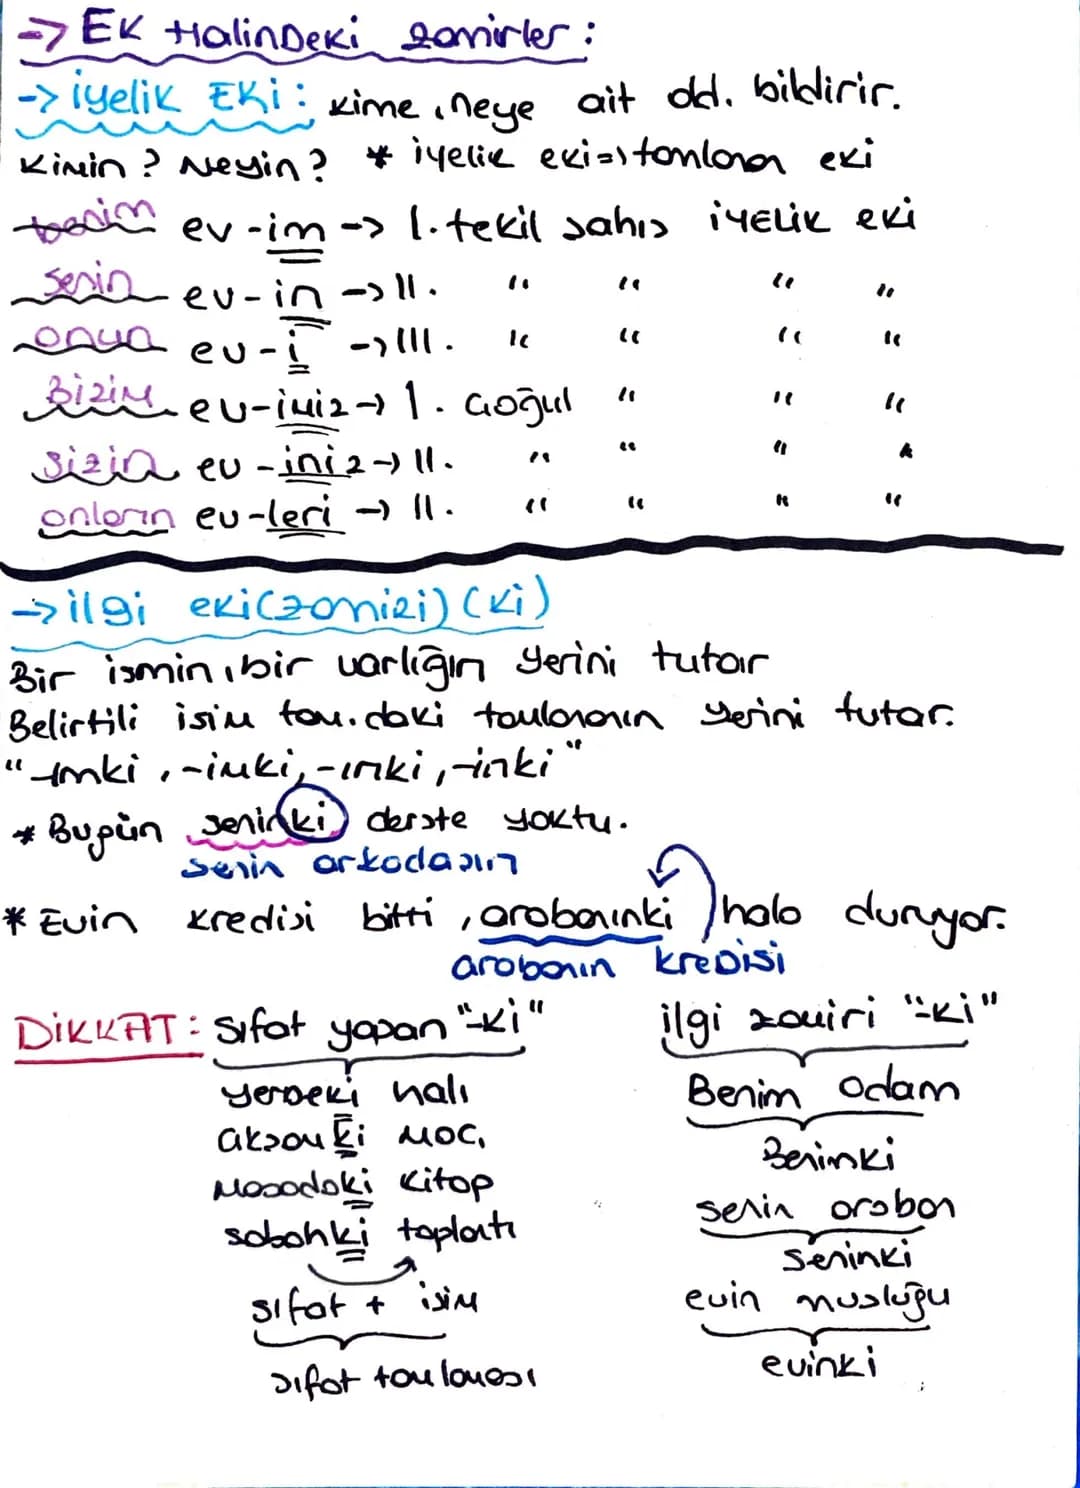 -> EK HalinDeki zamirler :
-> iyelik EKi : kime, neye ait old. bildirir.
Kimin ? Neyin ? * iyelik eki => tamlanan eki
benim ev -im -> I. tekil şahıs iYELiK eki
senin ev - in -> II. " " " "
onun ev - i -> III. " " " "
Bizim ev-imiz -> I. çoğul " " "
sizin ev -iniz -> II. " " " "
onların ev-leri -> II. " " " "
-> ilgi eki (zamiri) (ki)
Bir ismin, bir varlığın yerini tutar
Belirtili isim tam. daki tamlananın yerini tutar.
" -ımki , -imki, -ınki , -inki "
* Bugün seninki derste yoktu.
senin arkadaşın
* Evin kredisi bitti , arabanınki hala duruyor.
arabanın kreDisi
DİKKAT : Sıfat yapan "-ki" ilgi zamiri "-ki"
yerDeki halı Benim odam
akşamki maç Benimki
Masadaki kitap senin araban
sabahki toplantı seninki
sıfat + isim evin musluğu
sıfat tamlaması evinki